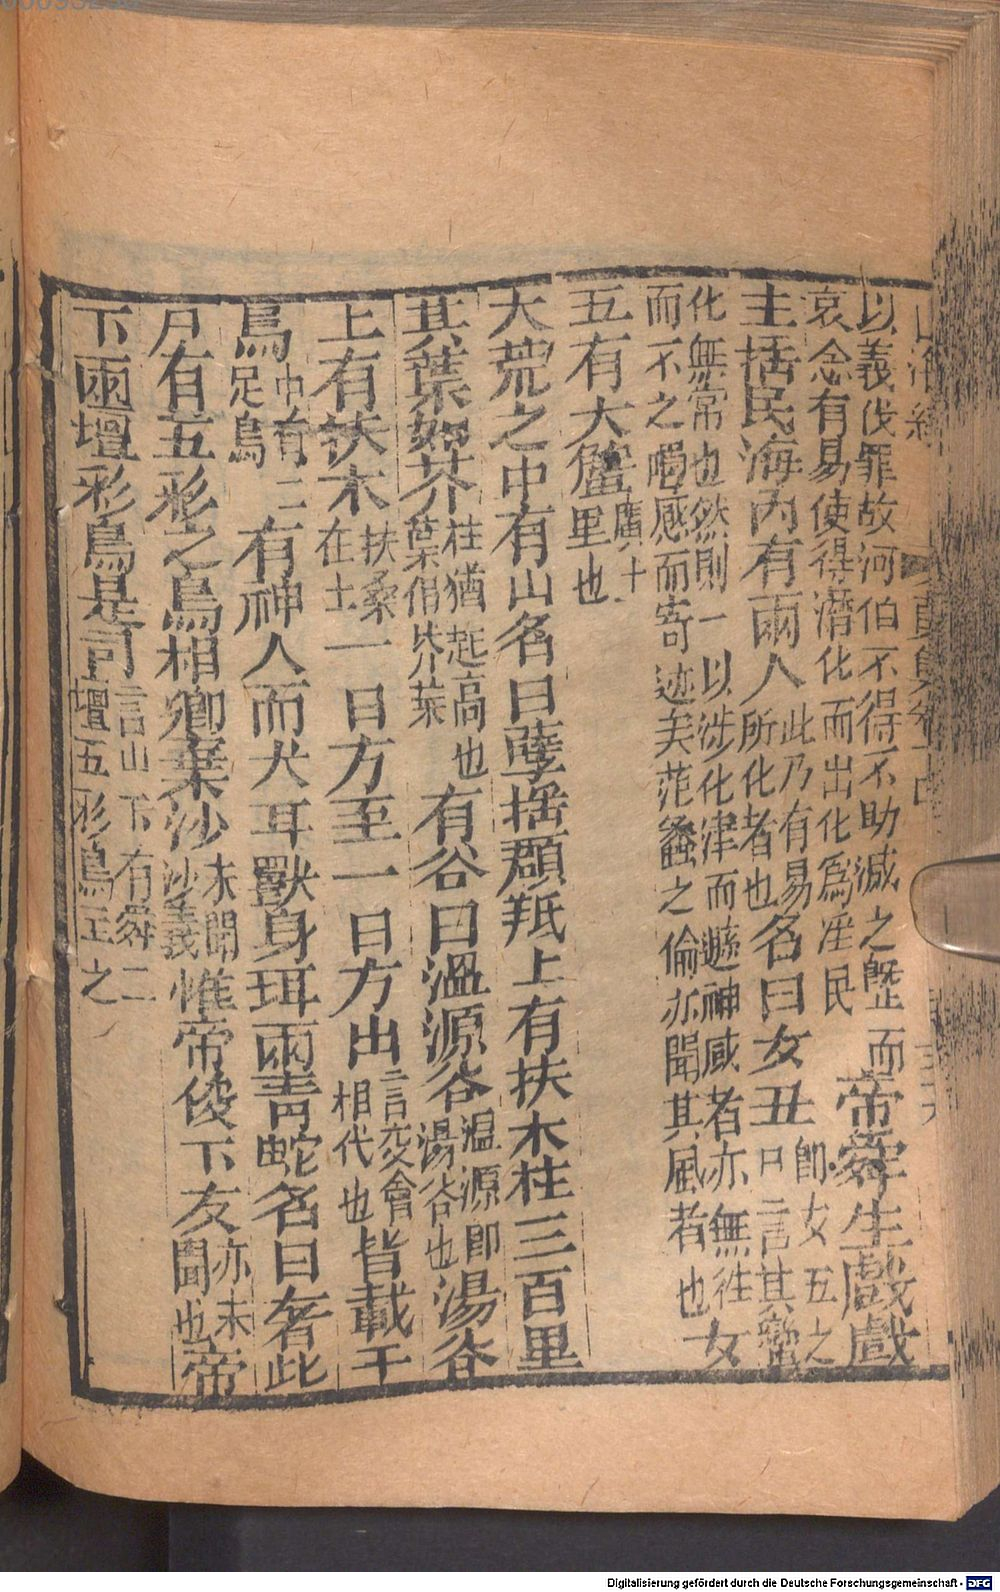 以義伐罪故河伯不得不助滅之旣而
哀念有易使得潛化而出化爲淫民
帝舜生戲戲
主揺民海內有兩人此乃有易
所化者也名曰女丑卽女五之
尸言其變
化無常也然則一以涉化津而遯神域者亦無往
而不之觸感而寄迹矣范蠡之倫亦聞其風者也女
五有大蟹廣十
里也
大荒之中有山名曰孽揺頵羝上有扶木柱三百里
其葉如芥柱猶起高也
葉似芥菜有谷曰溫源谷温源即
湯谷也湯谷
上有扶木扶桑
在上一日方至一日方出言交會
相代也皆載于
烏中有三
足烏有神人而犬耳獸身珥兩靑蛇名曰奢比
尸有五彩之鳥相鄉棄沙未聞
沙義惟帝俊下友亦未
聞也帝
下兩壇彩鳥是司言山下有舜二
壇五彩鳥主之
Digitalisierung gefördert durch die Deutsche Forschungsgemeinschaft - DFG